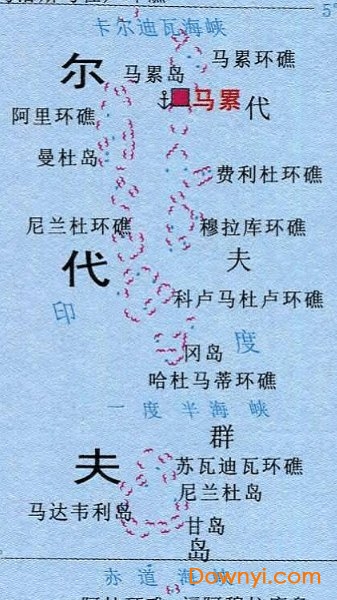 5°
卡尔迪瓦海峡
马累环礁
尔
马累岛
马累
代
阿里环礁
曼杜岛
费利杜环礁
尼兰杜环礁
穆拉库环礁
代
夫
科卢马杜卢环礁
印
度
冈岛
哈杜马蒂环礁
一度半海峡
群
夫
苏瓦迪瓦环礁
尼兰杜岛
马达韦利岛
甘岛
岛
赤道海峡
Downyi.com